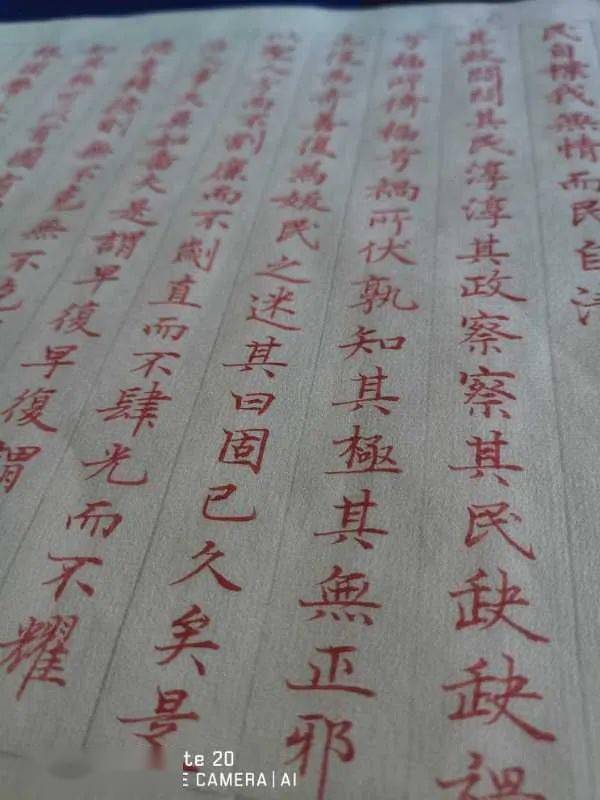 民自樸我無情而民自清
其政悶悶其民淳淳其政察察其民缺缺禍
兮福所倚福兮禍所伏孰知其極其無正邪
正復為奇善復為妖民之迷其日固已久矣是
以聖人方而不割廉而不劌直而不肆光而不耀
治人事天莫如嗇夫是謂早復早復謂
則無不克無不克
以有國
te 20
E CAMERA|AI